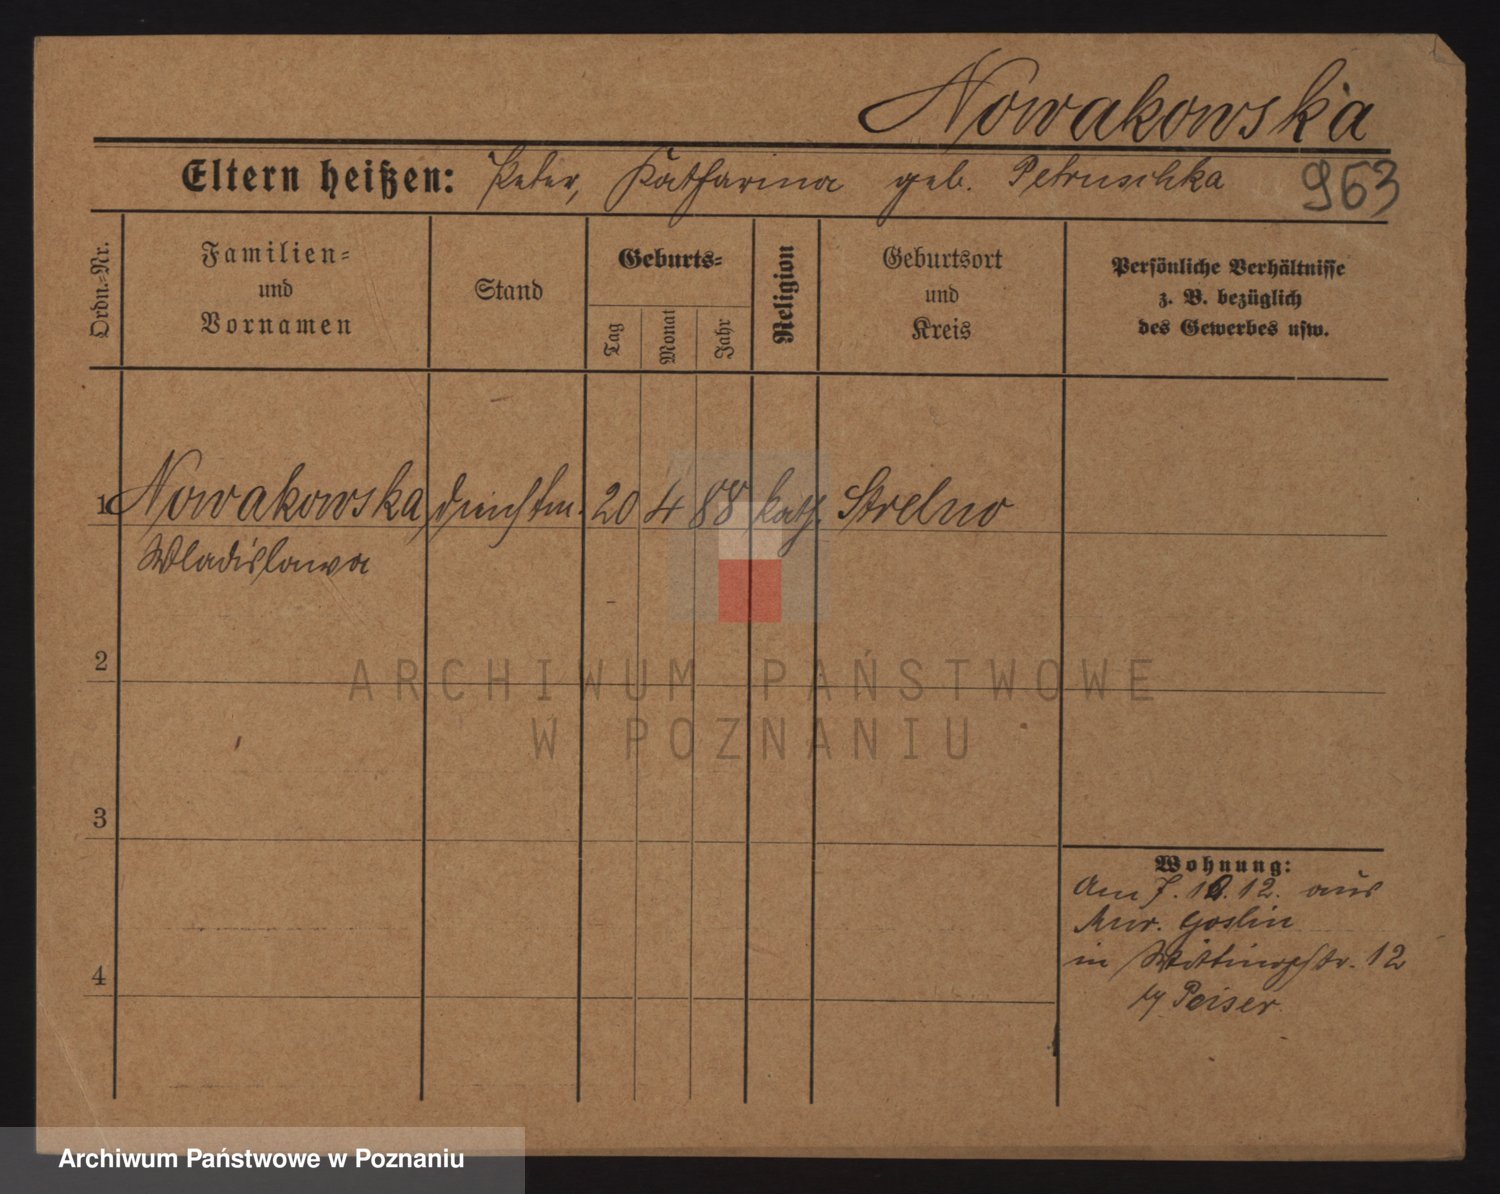 Nowakowska
Eltern heißen: Peter, Katharina geb. Petruschka 963
Ordn.-Nr.
Familien-
und
Vornamen
Stand
Geburts-
Tag
Monat
Jahr
Religion
Geburtsort
und
Kreis
Persönliche Verhältnisse
z. B. bezüglich
des Gewerbes usw.
1 Nowakowska 20 4 88 kath. Strelno
Wladislawa
2
ARCHIWUM PAŃSTWOWE
W POZNANIU
3
Wohnung:
Am 7. 12. aus
Mur. Goslin
4
in 12
Peiser
Archiwum Państwowe w Poznaniu